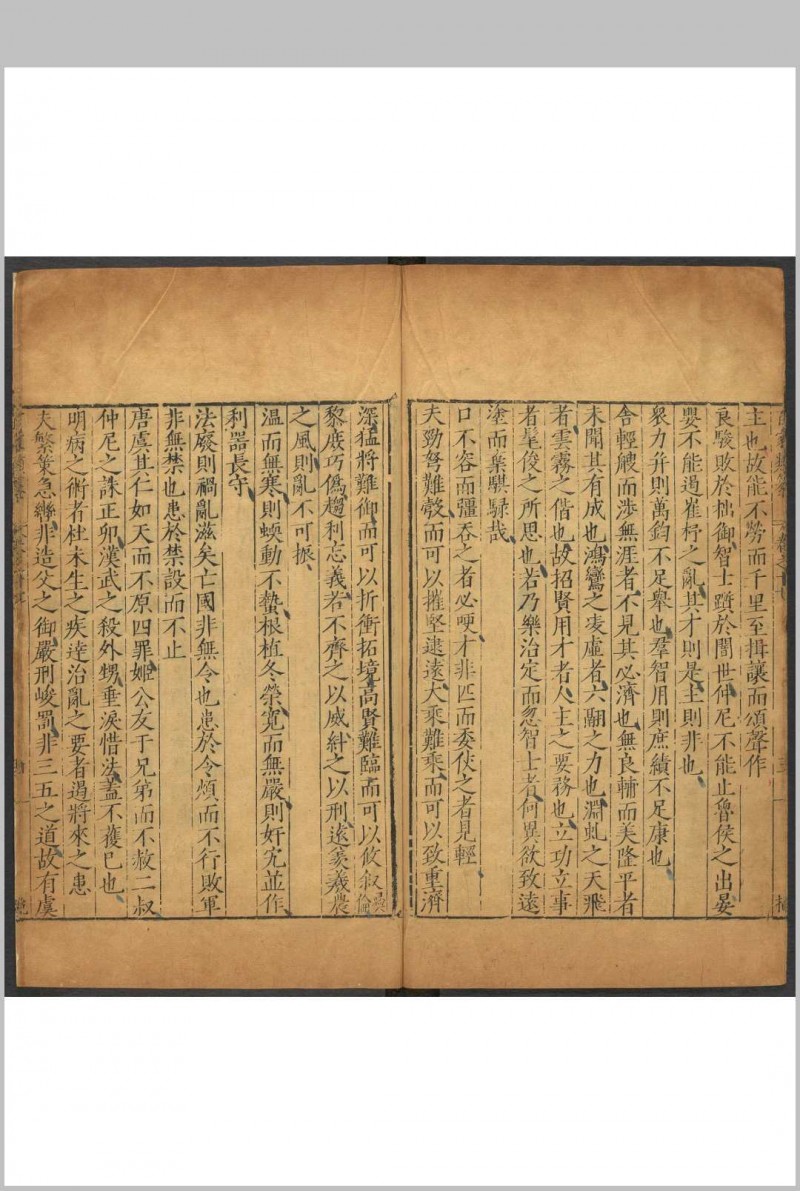 主也故能不勞而千里至揖讓而頌聲作
良駿敗於拙御智士躓於闇世仲尼不能止魯侯之出晏
嬰不能遏崔杼之亂其才則是主則非也
衆力并則萬鈞不足舉也羣智用則庶績不足康也
舍輕艘而涉無涯者不見其必濟也無良輔而羙隆平者
未聞其有成也鴻鸞之凌虛者六翮之力也淵虬之天飛
者雲霧之偕也故招賢用才者人主之要務也立功立事
者髦俊之所思也若乃樂治定而忽智士者何異欲致遠
塗而棄騏騄哉
口不容而彊吞之者必哽才非匹而委仗之者見輕
夫勁弩難彀而可以摧堅逮遠大乘難乘而可以致重濟
深猛將難御而可以折衝拓境高賢難臨而可以攸敘彞倫
黎庶巧僞趨利忘義若不齊之以威糾之以刑遠羲農
之風則亂不可振
温而無寒則蝡動不蟄根植冬榮寛而無嚴則奸宄並作
利器長守
法廢則禍亂滋矣亡國非無令也患於令煩而不行敗軍
非無禁也患於禁設而不止
唐虞其仁如天而不原四罪姬公友于兄第而不赦二叔
仲尼之誅正卯漢武之殺外甥垂淚惜法蓋不獲已也
明病之術者杜未生之疾達治亂之要者遏將來之患
夫繁策急轡非造父之御嚴刑峻罰非三五之道故有虞